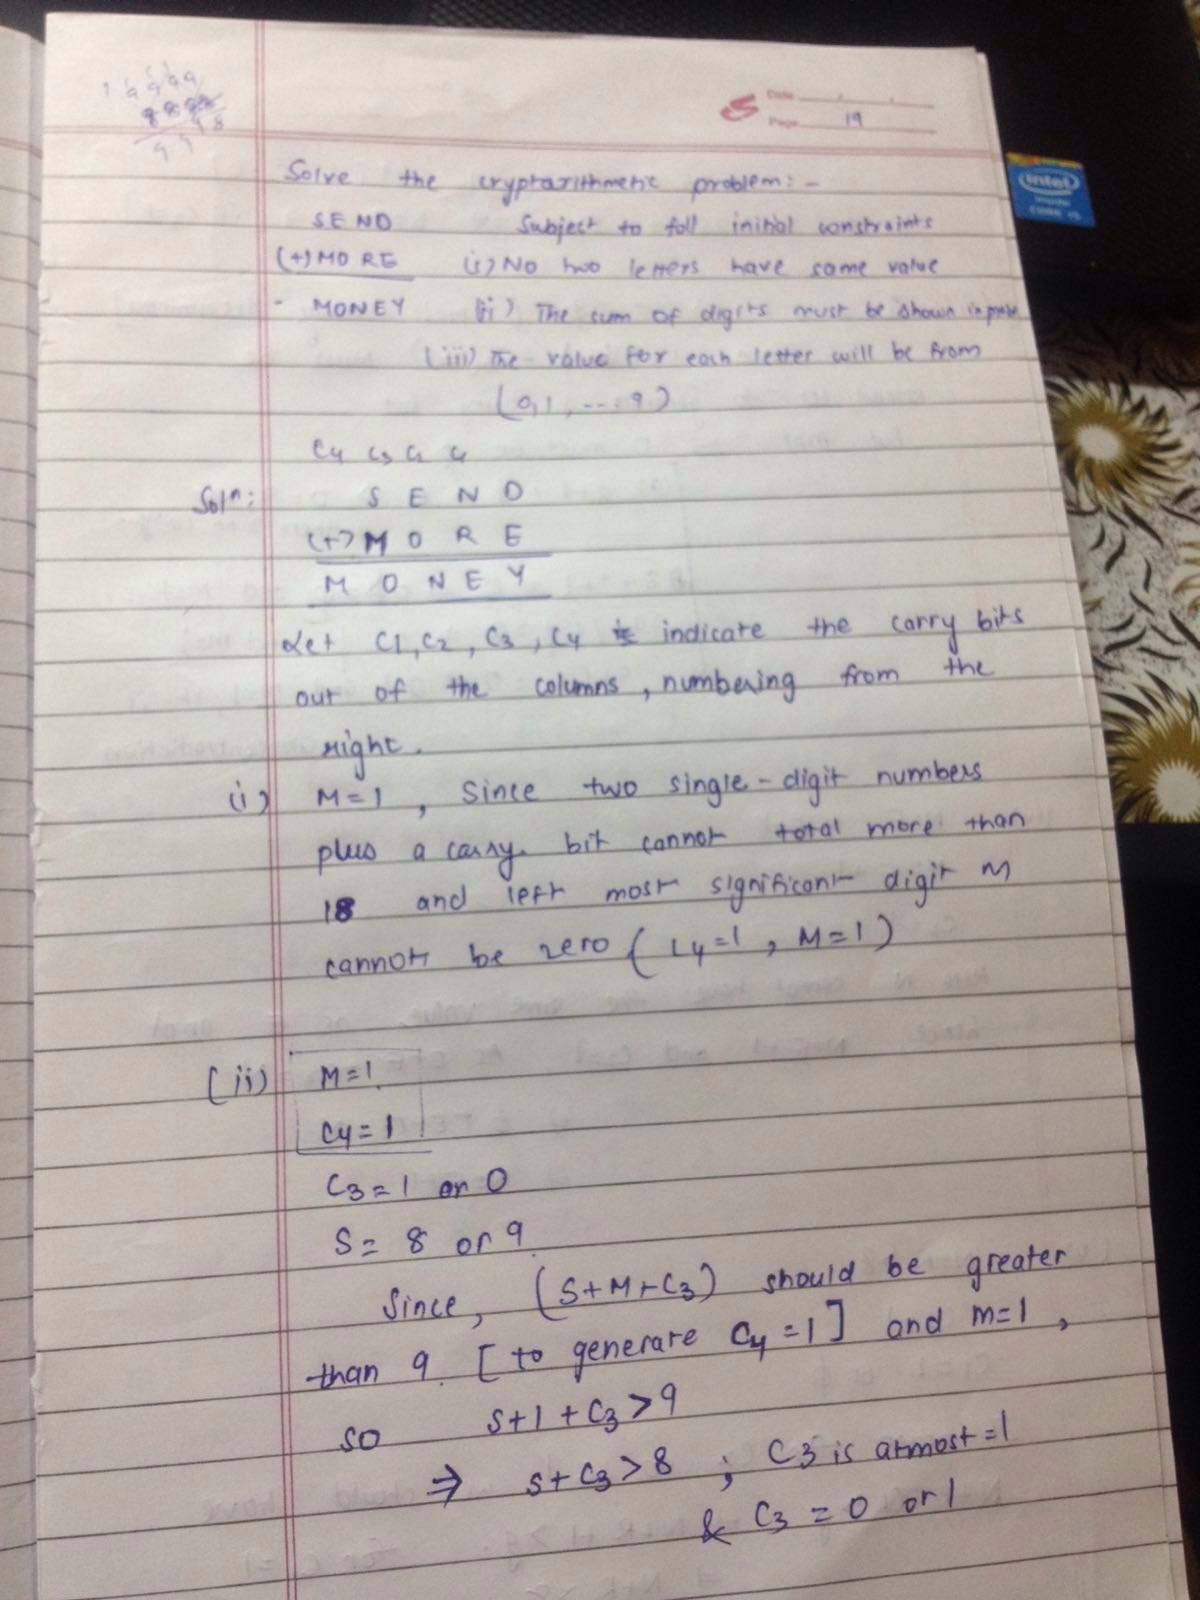 Date
Page 19
Solve the cryptarithmetic problem:-
SEND Subject to foll initial constraints
(+) MORE (i) No two letters have same value
- MONEY (ii) The sum of digits must be shown in prob
(iii) The value for each letter will be from
(0,1, ....9)
C4 C3 C2 C1
Solⁿ: S E N D
(+) M O R E
M O N E Y
Let C1, C2, C3, C4 indicate the carry bits
out of the columns, numbering from the
right.
(i) M=1, Since two single-digit numbers
plus a carry bit cannot total more than
18 and left most significant digit M
cannot be zero (C4=1, M=1)
(ii) M=1.
C4=1
C3=1 or 0
S= 8 or 9.
Since, (S+M+C3) should be greater
than 9. [to generate C4=1] and m=1,
so S+1+C3>9
⇒ S+C3>8 ; C3 is atmost=1
& C3 = 0 or 1
intel
inside
CORE i5